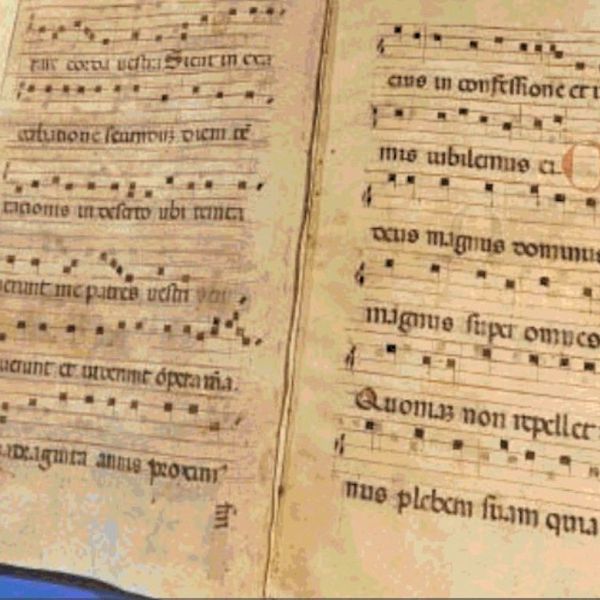 rare corda vestra Sicut in exa
cerbatione secundum diem te
tacionis in deserto ubi temta
uerunt me patres vestri
uerunt et viderunt opera mea.
adraginta annis proxim9
eius in confessione et i
mis iubilemus ei
deus magnus dominus
magnus super omnes
Quoniam non repellet
nus plebem suam quia